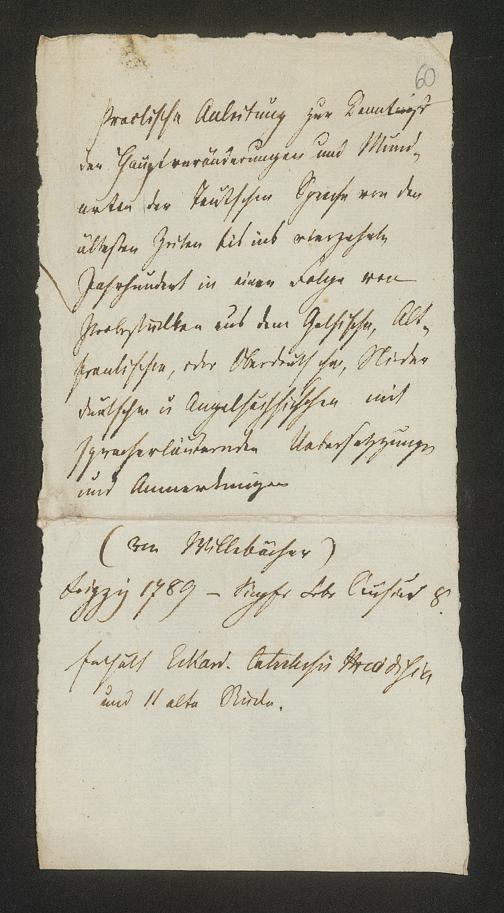 60
Practische Anleitung zur Kenntniß
der Hauptveränderungen und Mund-
arten der Teutschen Sprache von den
ältesten Zeiten bis ins vierzehnte
Jahrhundert in einer Folge von
Probestücken aus dem Gothischen, Alt-
fränkischen, oder Oberdeutschen, Nieder
deutschen u Angelsächsischen mit
spracherläuternden Uebersetzungen
und Anmerkungen
(von Willebücher)
Leipzig 1789 – Siegfr Lebr Crusius 8.
enthält Eckard. Catechesis
und 11 alte Stücke.